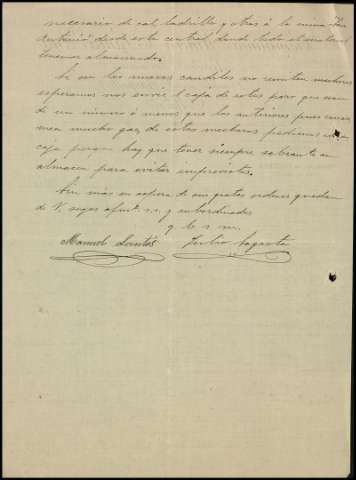 necesario de cal, ladrillo y otros á la mina San
Antonio desde esta central, donde todo el material
tenemos almacenado.
Si con los nuevos candiles no remiten mecheros
esperamos nos envie 1 caja de estos pero que sean
de un número ó menos que los anteriores pues
mucho gas, de estos mecheros pedimos una
caja porque hay que tener siempre sobrante en
almacen para evitar imprevistos.
Sin mas en espera de sus gratas ordenes quedan
de V. suyos afmos. s.s. y subordinados
q. b. s. m.
Manuel Santos Julio Lagarta